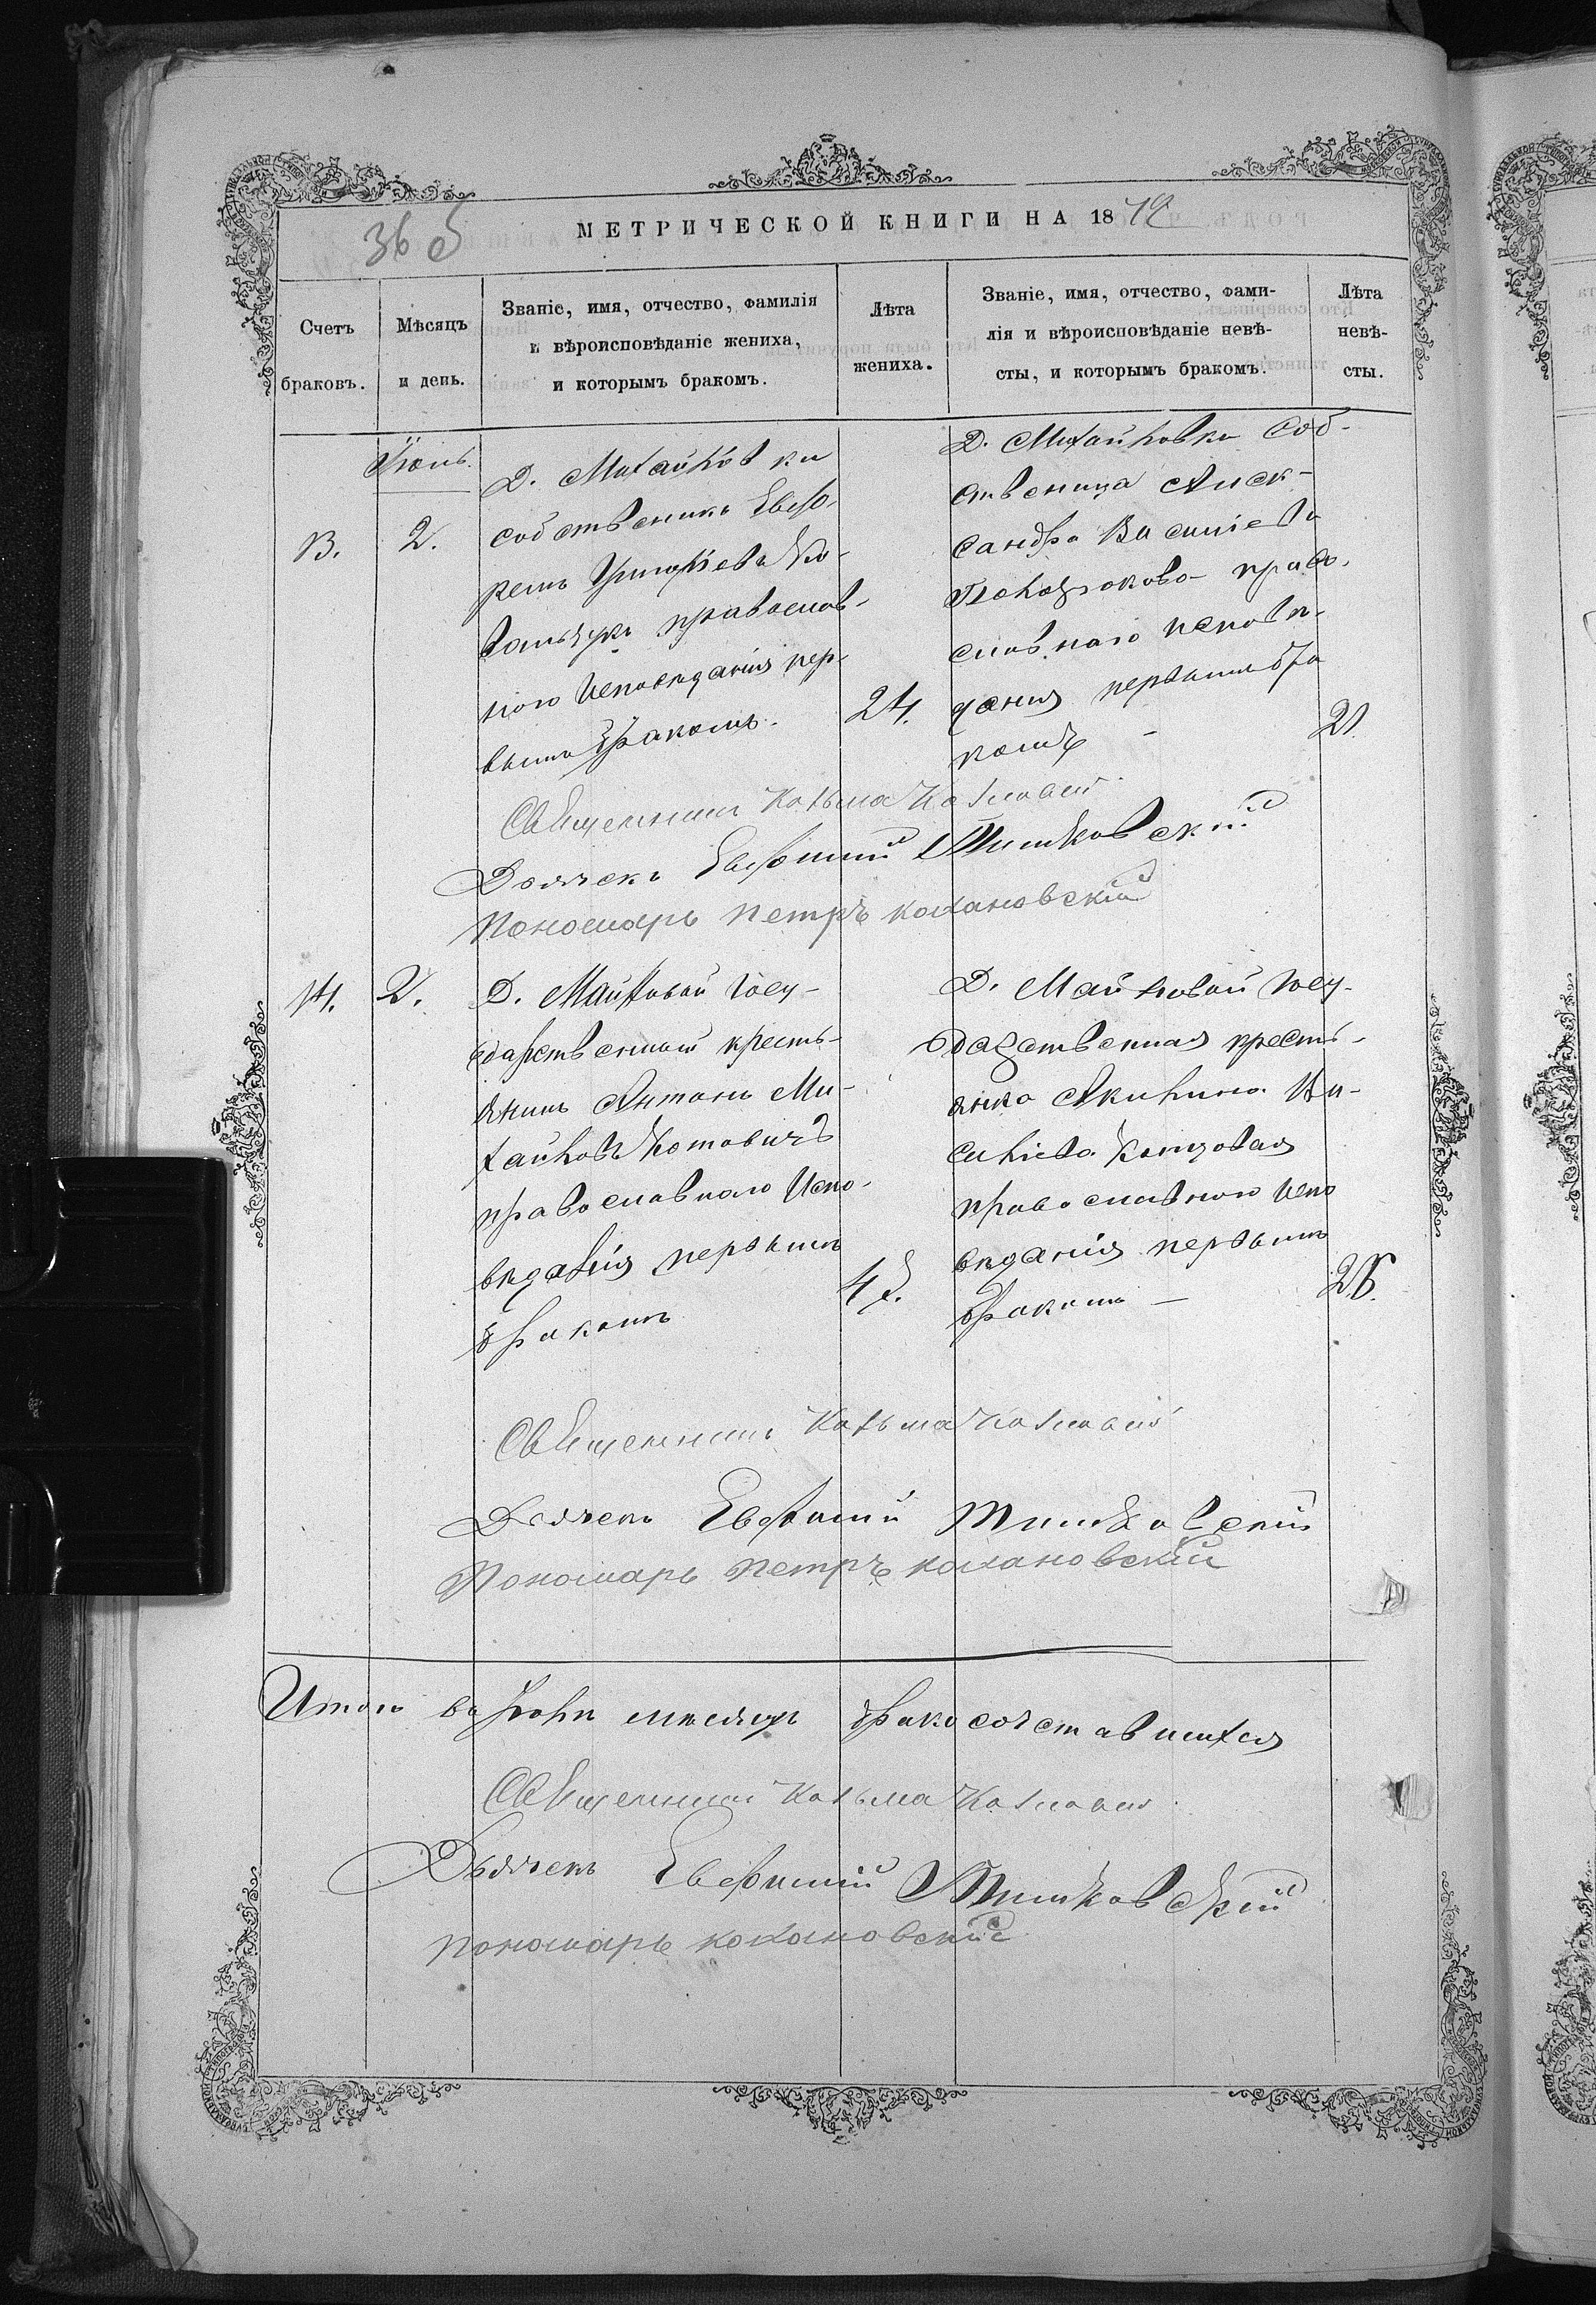 36 об
МЕТРИЧЕСКОЙ КНИГИ НА 1872
Счетъ браковъ.
Мѣсяцъ и день.
Званіе, имя, отчество, фамилія
и вѣроисповѣданіе жениха,
и которымъ бракомъ.
Лѣта
жениха.
Званіе, имя, отчество, фами-
лія и вѣроисповѣданіе невѣ-
сты, и которымъ бракомъ.
Лѣта
невѣ-
сты.
Іюнь.
13.
2.
Д. Михайловки
собственникъ
православ-
ного исповѣданія пер-
вымъ бракомъ.
24.
Д. Михайловки соб-
ственица Алек-
сандра Василіева
право-
славнаго исповѣ-
данія первымъ бра
комъ –
21
Священникъ Козьма
Дьячекъ Евфимій
Пономарь Петръ Кохановскій
14.
2.
Д. Майковой госу-
дарственный кресть-
янинъ Антонъ Ми-
хайловъ Котовичъ
православнаго испо-
вѣданія первымъ
бракомъ
Д. Майковой госу-
дарственная кресть-
янка Акилина Ва-
силіева
православного испо
вѣданія первымъ
бракомъ –
Священникъ Козьма
Дьячекъ Евфимій
Пономарь Петръ Кохановскій
Итого въ Іюнѣ мѣсяцѣ бракосочетавшихся
Священникъ Козьма
Дьячекъ Евфимій
Пономарь Кохановскій